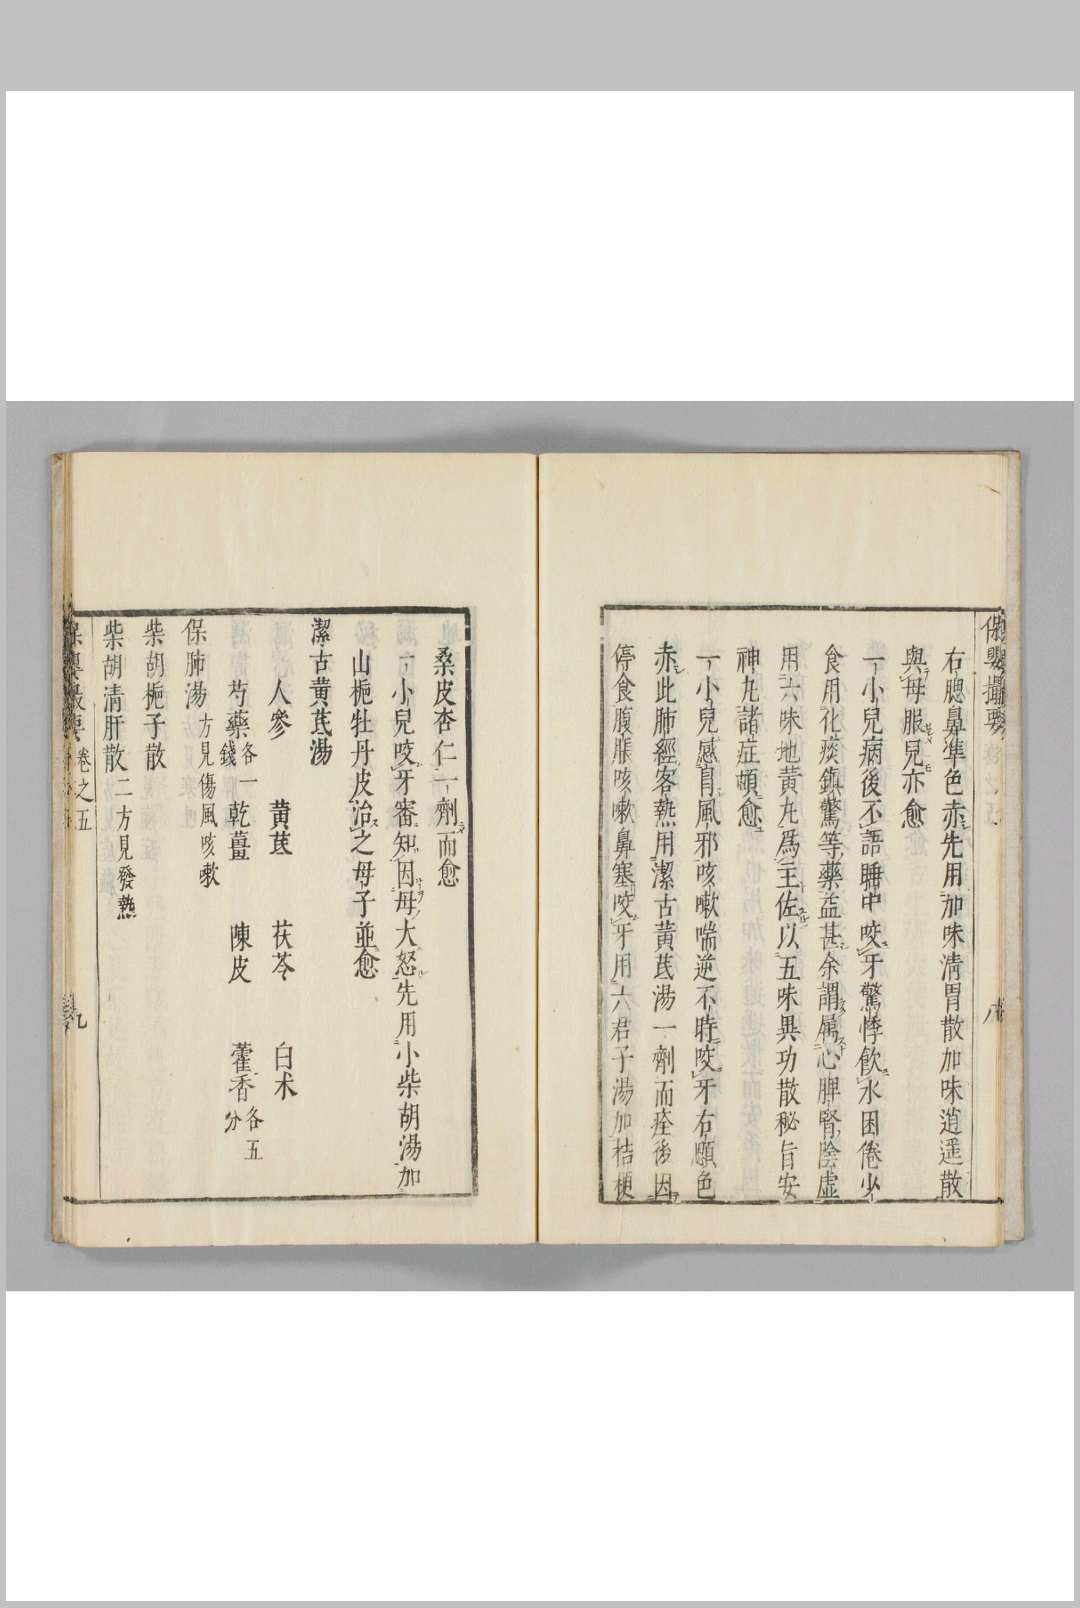 保嬰攝要
八
右腮鼻準色赤先用加味清胃散加味逍遥散
與母服兒亦愈
一小兒病後不語睡中咬牙驚悸飲水困倦少
食用化痰鎮驚等藥益甚余謂属心脾腎陰虛
用六味地黄丸爲主佐以五味異功散秘旨安
神丸諸症頓愈
一小兒感冐風邪咳嗽喘逆不時咬牙右頥色
赤此肺經客熱用潔古黄芪湯一劑而痊後因
停食腹脹咳嗽鼻塞咬牙用六君子湯加桔梗
桑皮杏仁一劑而愈
一小兒咬牙審知因母大怒先用小柴胡湯加
山梔牡丹皮治之母子並愈
潔古黄芪湯
人參 黄芪 茯苓 白术
芍藥各一錢 乾薑 陳皮 藿香各五分
保肺湯方見傷風咳嗽
柴胡梔子散
柴胡清肝散二方見發熱
卷之五
九